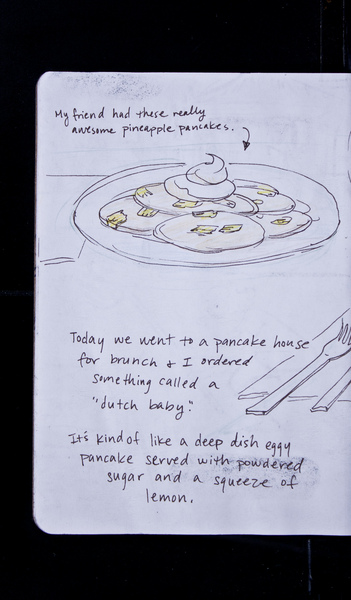 My friend had these really
awesome pineapple pancakes.
Today we went to a pancake house
for brunch & I ordered
something called a
"dutch baby."
It's kind of like a deep dish eggy
pancake served with powdered
sugar and a squeeze of
lemon.